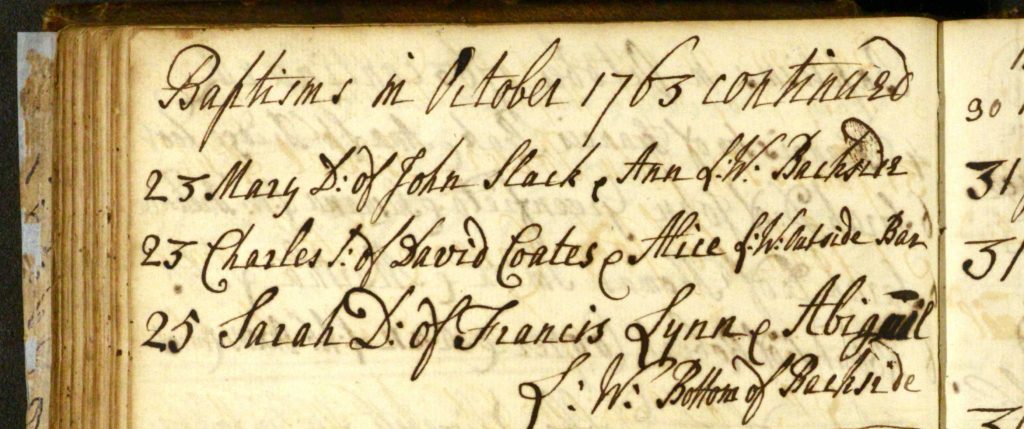 Baptisms in October 1763 continued
23 Mary D: of John Slack & Ann L:W: Backside
23 Charles S: of David Coates & Alice L:W: Outside Bar
25 Sarah D: of Francis Lynn & Abigail
L: W: Bottom of Backside
30
31
31